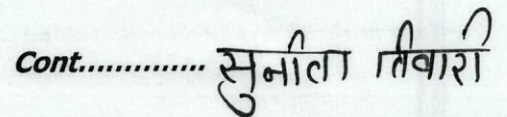 Cont.............. सुनीता तिवारी